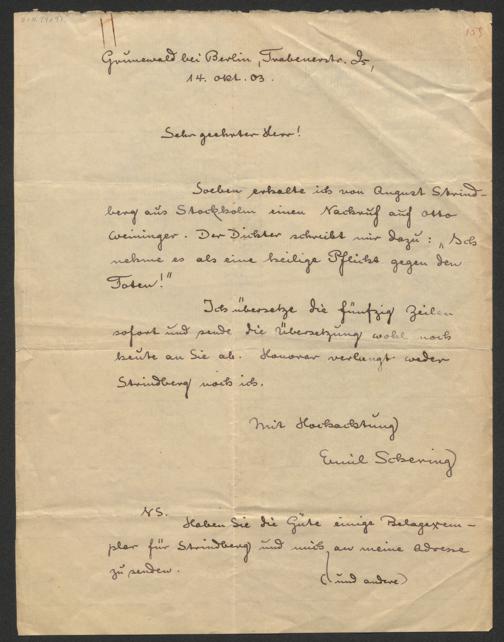 Grunewald bei Berlin, Trabenerstr. 2,
14. Okt. 03.
Sehr geehrter Herr!
Soeben erhalte ich von August Strind-
berg aus Stockholm einen Nachruf auf Otto
Weininger. Der Dichter schreibt mir dazu: „Ich
nehme es als eine heilige Pflicht gegen den
Toten!"
Ich übersetze die fünfzig Zeilen
sofort und sende die Übersetzung wohl noch
heute an Sie ab. Honorar verlangt weder
Strindberg noch ich.
Mit Hochachtung
Emil Schering
NS.
Haben Sie die Güte einige Belagexem-
plar für Strindberg und mich an meine Adresse
zu senden.
(und andere)